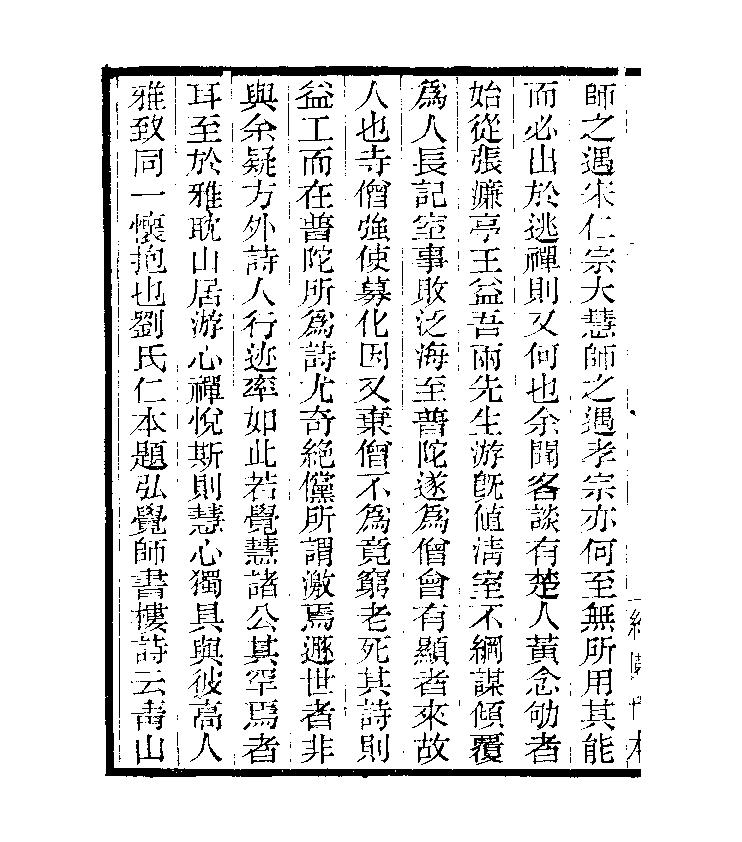 師之遇宋仁宗大慧師之遇孝宗亦何至無所用其能
而必出於逃禪則又何也余聞客談有楚人黃念劬者
始從張濂亭王益吾兩先生游旣値淸室不綱謀傾覆
爲人長記室事敗泛海至普陀遂爲僧會有顯者來故
人也寺僧強使募化因又棄僧不爲竟窮老死其詩則
益工而在普陀所爲詩尤奇絶儻所謂激焉遯世者非
與余疑方外詩人行迹率如此若覺慧諸公其罕焉者
耳至於雅耽山居游心禪悅斯則慧心獨具與彼高人
雅致同一懷抱也劉氏仁本題弘覺師書樓詩云靑山